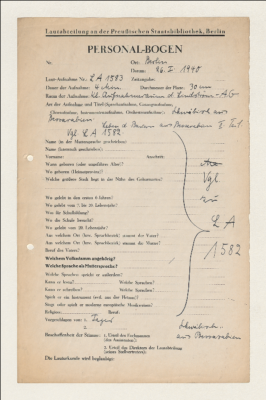 Lautabteilung an der Preußischen Staatsbibliothek, Berlin
PERSONAL-BOGEN
Nr. Ort: Berlin
Datum: 26. I. 1940
Laut-Aufnahme Nr.: LA 1583 Zeitangabe:
Dauer der Aufnahme: 4 Min. Durchmesser der Platte: 30 cm
Raum der Aufnahme:
Art der Aufnahme und Titel
Schwäbisch aus
Bessarabien:
Vgl LA 1582
Name (in der Muttersprache geschrieben):
Name (lateinisch geschrieben):
Vorname: Anschrift:
Wann geboren (oder ungefähres Alter)?
Wo geboren (Heimatort)?
Welche größere Stadt liegt in der Nähe des Geburtsortes?
Vgl
zu
Wo gelebt in den ersten 6 Jahren?
Wo gelebt vom 7. bis 20. Lebensjahr?
Was für Schulbildung?
Wo die Schule besucht?
Wo gelebt vom 20. Lebensjahr?
LA
Aus welchem Ort (bzw. Sprachbezirk) stammt der Vater?
Aus welchem Ort (bzw. Sprachbezirk) stammt die Mutter?
1582
Beruf des Vaters?
Welchem Volksstamm angehörig?
Welche Sprache als Muttersprache?
Welche Sprachen spricht er außerdem?
Kann er lesen? Welche Sprachen?
Kann er schreiben? Welche Sprachen?
Spielt er ein Instrument (evtl. aus der Heimat)?
Singt oder spielt er moderne europäische Musikweisen?
Religion: Beruf:
Vorgeschlagen von: 1.
2.
Beschaffenheit der Stimme: 1. Urteil des Fachmannes
(des Assistenten):
Schwäbisch
aus Bessarabien
2. Urteil des Direktors der Lautabteilung
(seines Stellvertreters):
Die Lauturkunde wird beglaubigt: